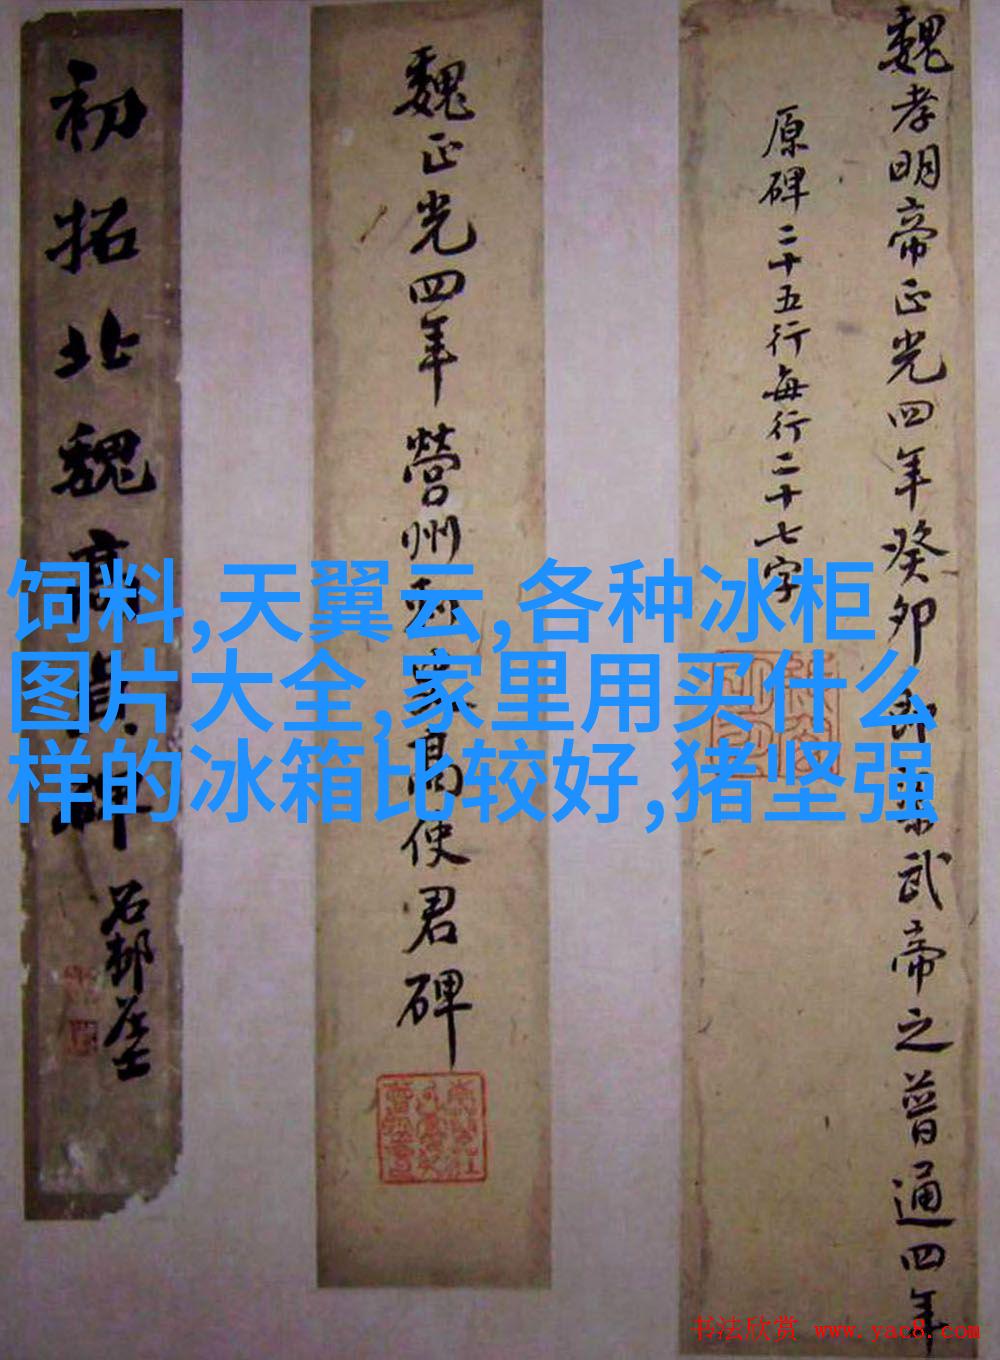 魏孝明帝正光四年癸卯即梁武帝之普通四年
原碑二十五行每行二十七字
魏正光四年營州刺史高使君碑
初拓北魏高貞碑
饲料,天翼云,各种冰柜
图片大全,家里用买什么
样的冰箱比较好,猪坚强
书法欣赏 www.yac8.com